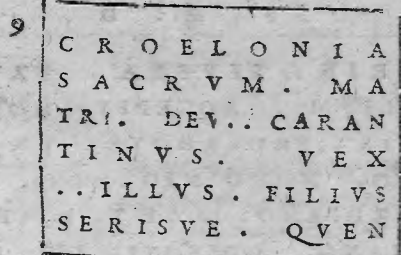 9
CROELONIA
SACRVM. MA
TRI. DEV.. CARAN
TINVS. VEX
..ILLVS. FILIVS
SERISVE. QVEN